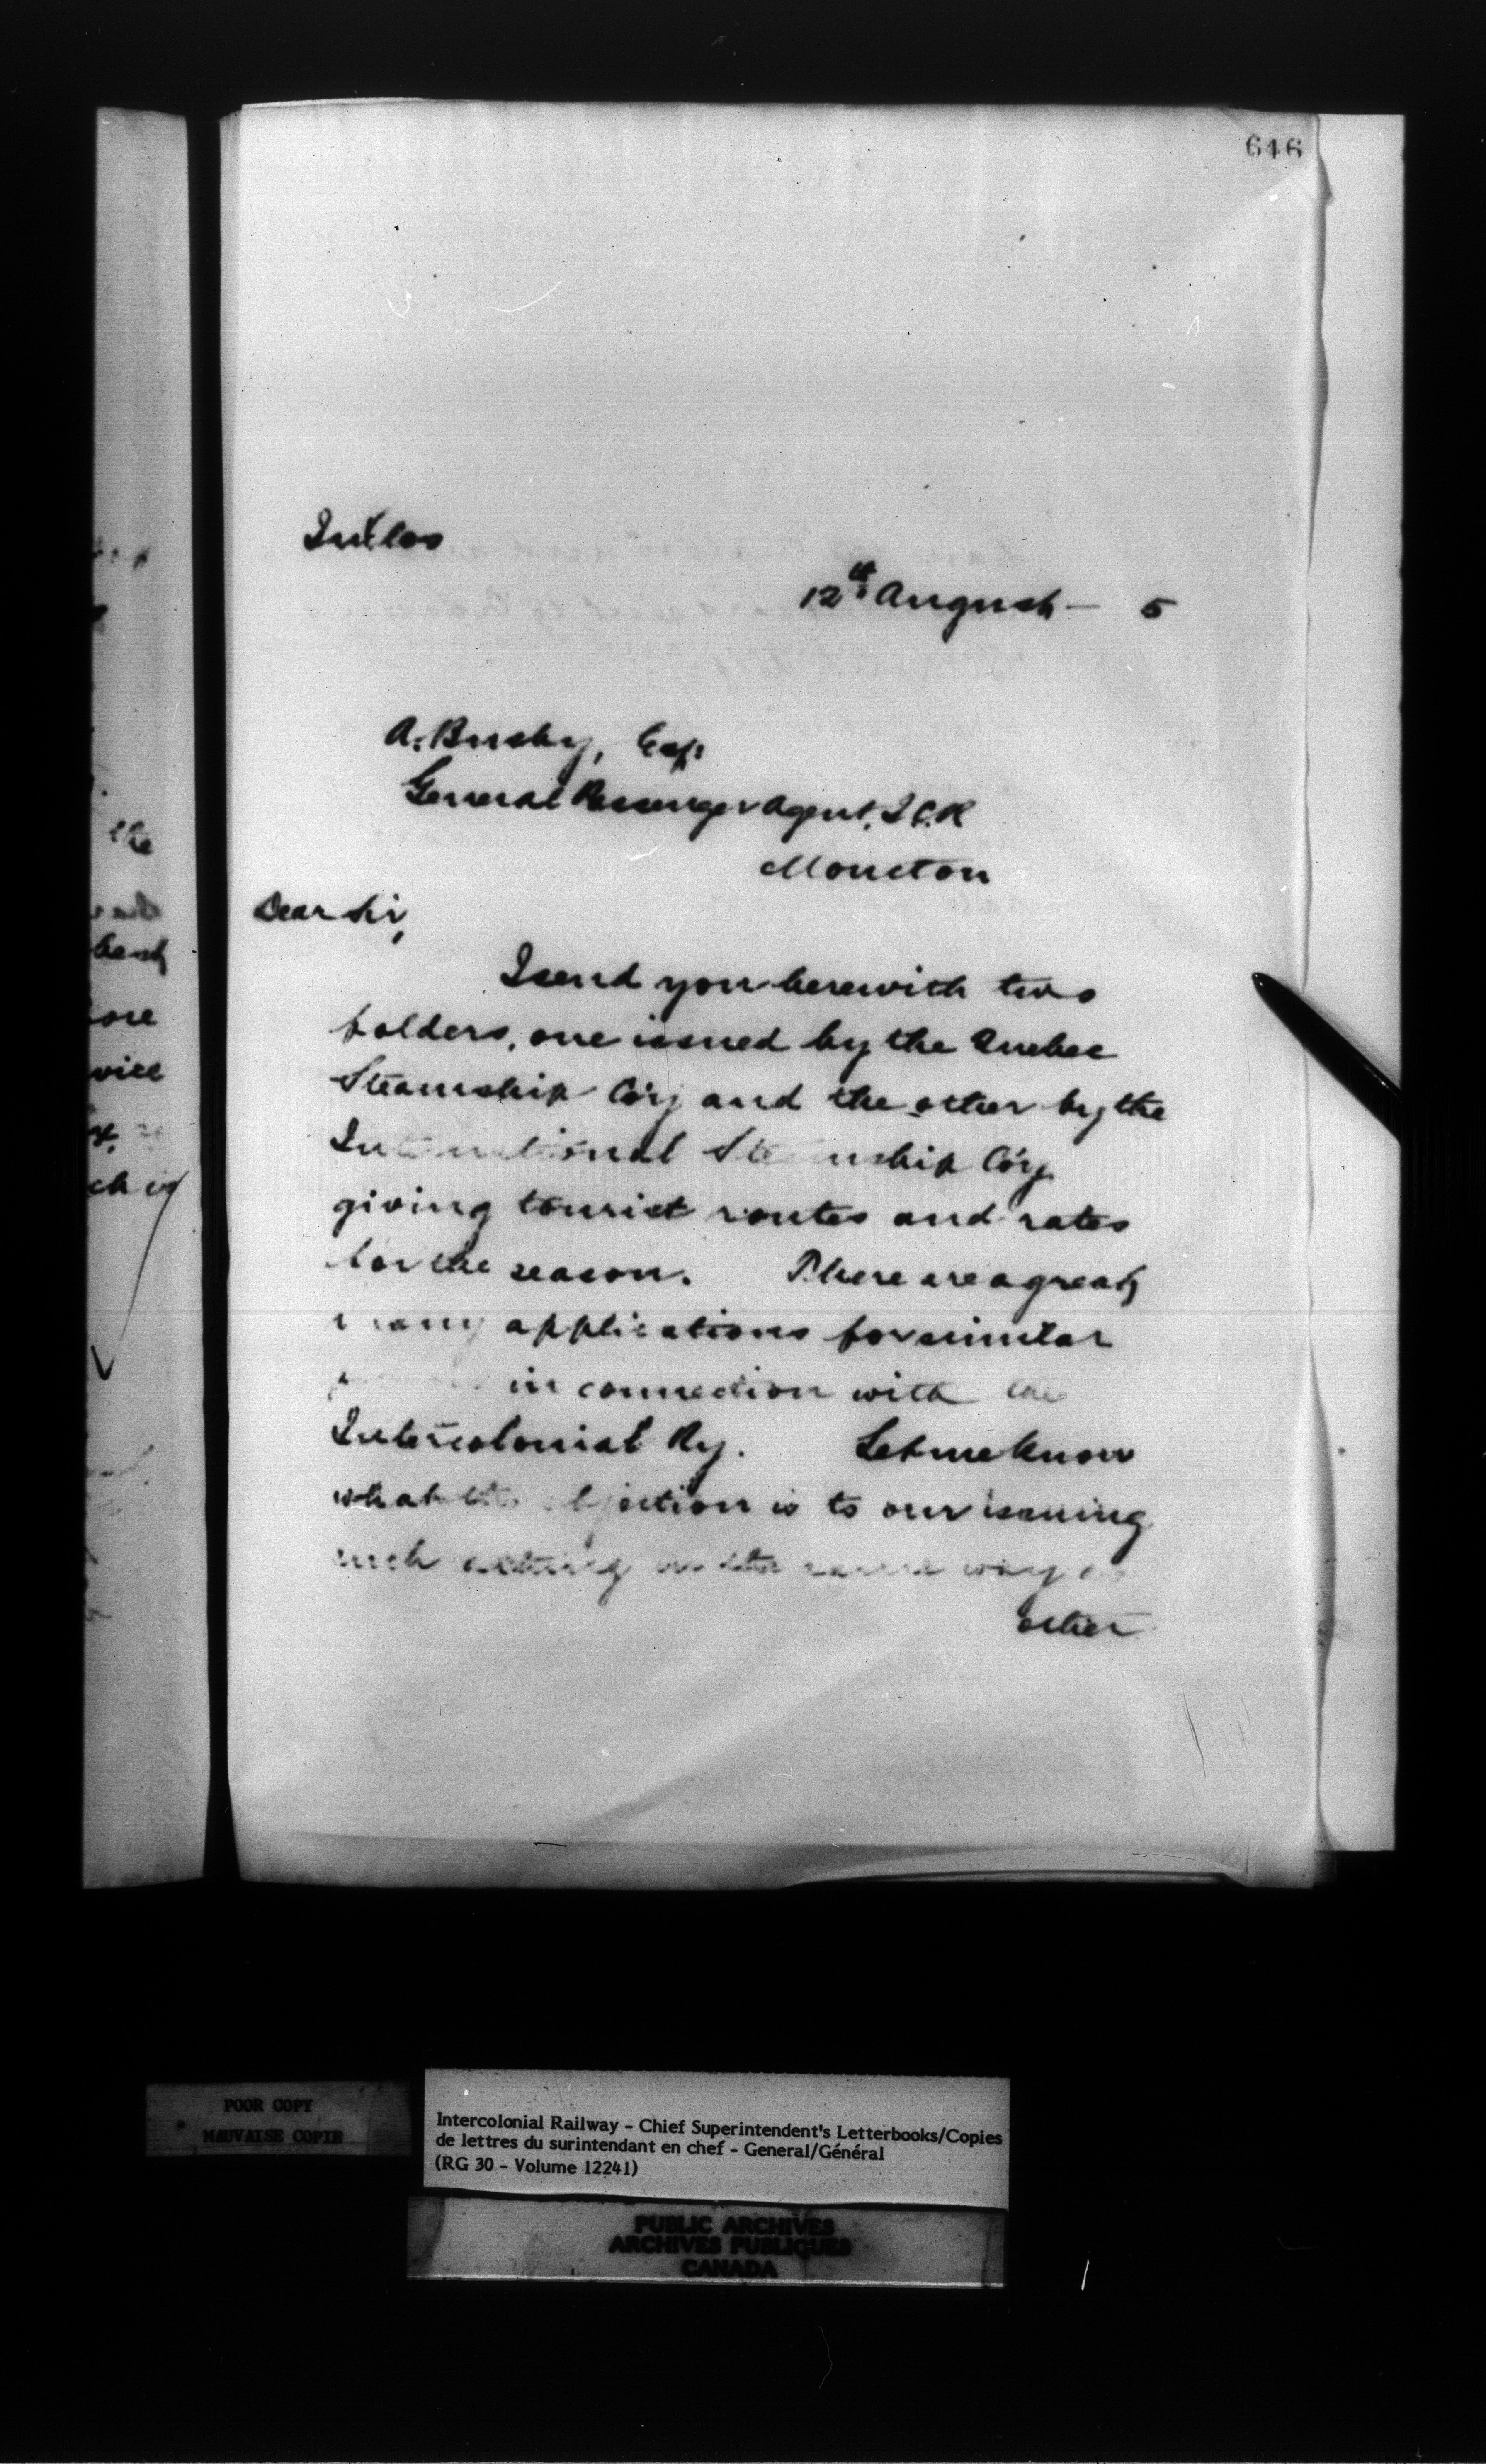 646
12th August — 5
A. Busby, Esq.
General Passenger Agent, I.C.R
Moncton
Dear Sir,
I send you herewith two
folders, one issued by the Quebec
Steamship Co'y and the other by the
International Steamship Co'y
giving tourist routes and rates
for the season. There are a great
many applications for similar
in connection with the
Intercolonial Ry. Let me know
what the objection is to our issuing
such in the same way as
other
the
best
vice
ch is
POOR COPY
MAUVAISE COPIE
Intercolonial Railway - Chief Superintendent's Letterbooks/Copies
de lettres du surintendant en chef - General/Général
(RG 30 - Volume 12241)
PUBLIC ARCHIVES
ARCHIVES PUBLIQUES
CANADA